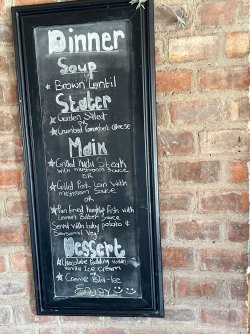 Dinner
Soup
Brown Lentil
Stater
Garden Salled
OR
Crumbed Camembert cheese
Main
Grilled Steak
with mushroom Sauce
OR
Grilled Pork Loin With
mushroom Sauce
OR
Pan Fried Fish with
Lemon Butter Sauce
Served with baby potato &
Seasonal Veg
Dessert
Chocolate Pudding with
Vanilla Ice Cream
Creme Bru-lee
Enjoy